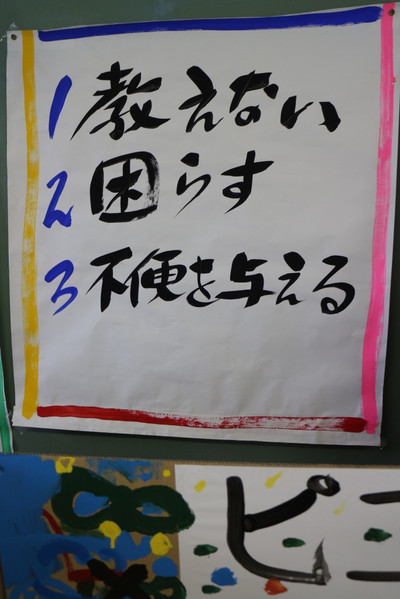 1 教えない
2 困らす
3 不便を与える
ピ